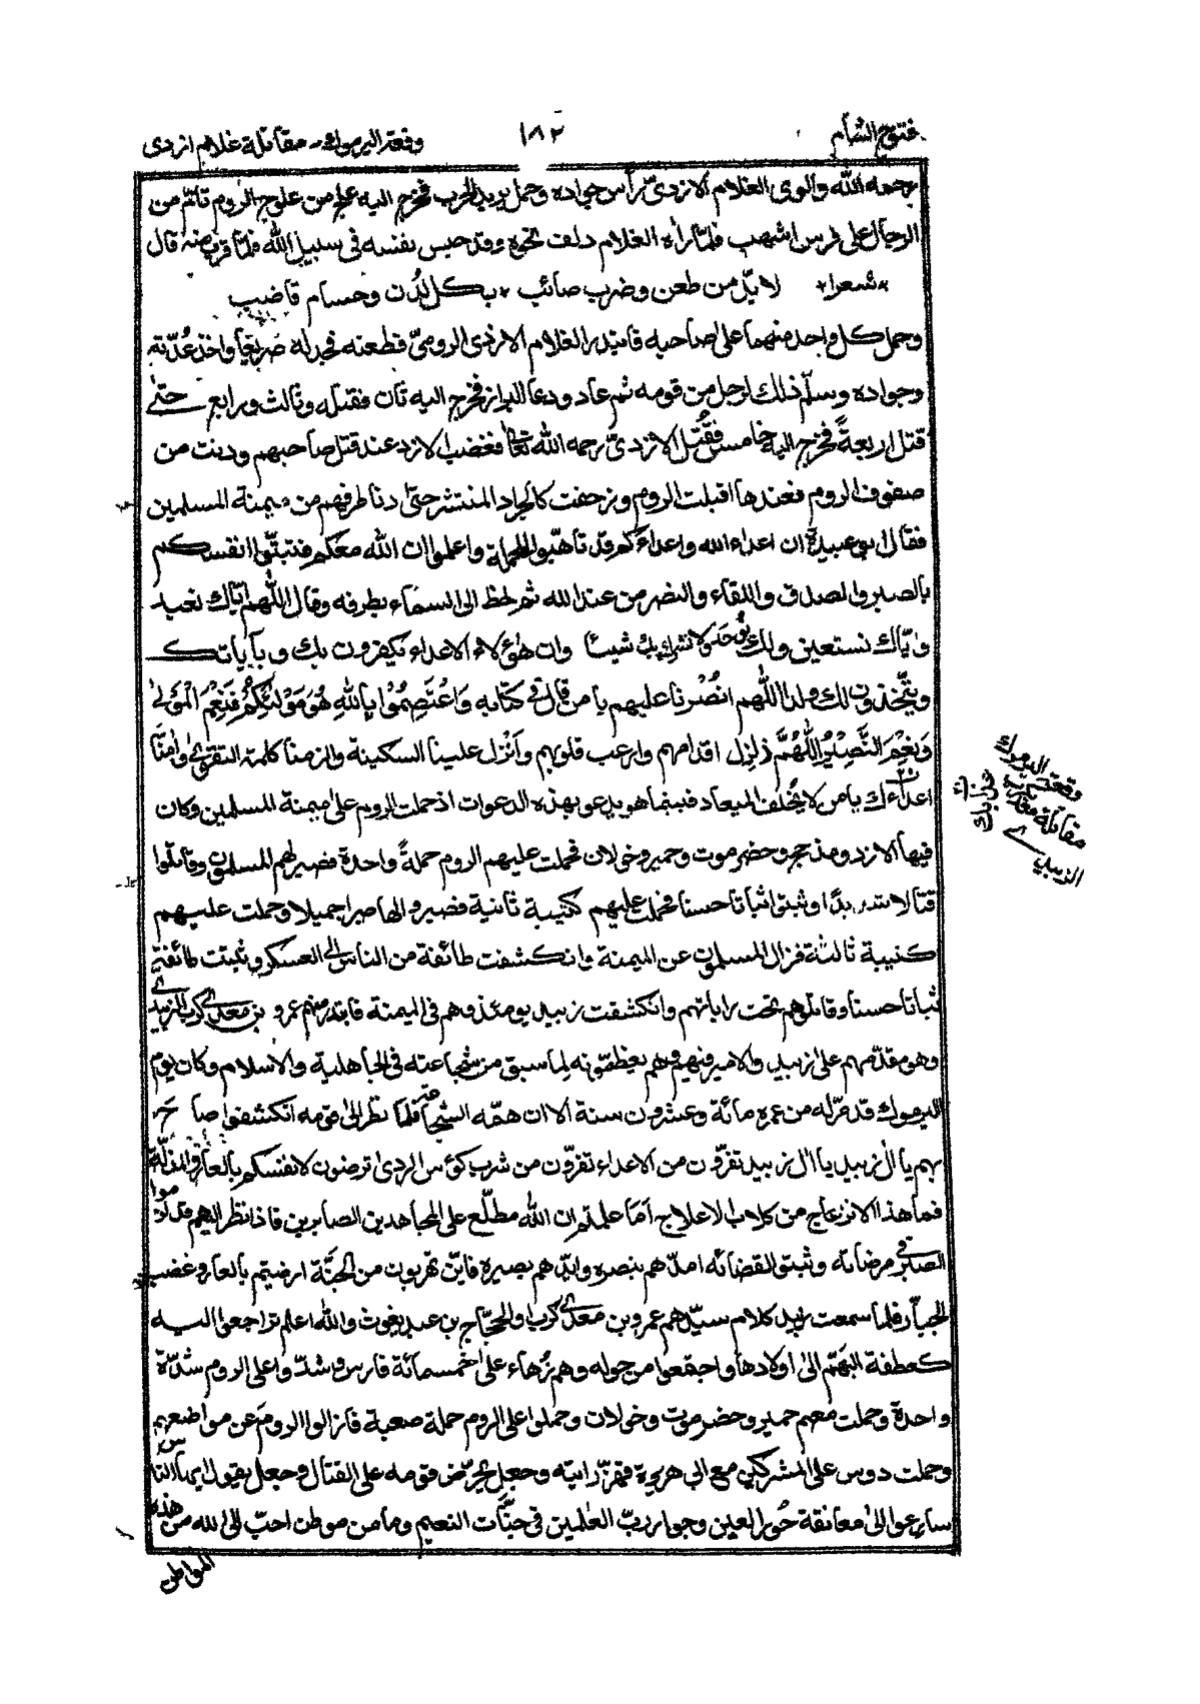 فتوح الشام
١٨٢
وقعة اليرموك - مقاتلة غلام ازدى
رحمه الله والوى الغلام الازدىّ رأس جواده وحمل يريد الحرب فخرج اليه علج من علوج الروم قائم من
الرجال على فرس اشهب فلمّا رأه الغلام دلف نحوه وقد حبس نفسه فى سبيل الله فلمّا قرب منه قال
شعرا لا بدّ من طعن وضرب صائب بكل لُدن وحسام قاضب
وحمل كل واحد منهما على صاحبه فابتدر الغلام الازدى الروميّ فطعنه فجدله صريعا واخذ عُدّته
وجواده وسلّم ذلك لرجل من قومه ثم عاد ودعا للبراز فخرج اليه ثان فقتله وثالث ورابع حتى
قتل اربعةً فخرج اليه خامس فقُتل الازدىّ رحمه الله تعالى فغضب الازد عند قتل صاحبهم ودنت من
صفوف الروم فعندها اقبلت الروم وزحفت كالجراد المنتشر حتى دنا طرفهم من ميمنة المسلمين
فقال ابو عبيدة ان اعداء الله واعداءكم قد تأهبوا للحملة واعلموا ان الله معكم فثبتّوا انفسكم
بالصبر والصدق واللقاء والنصر من عند الله ثم لحظ الى السماء بطرفه وقال اللّهم ايّاك نعبد
وايّاك نستعين ولك نُوحّد ولا نشرك بك شيئًا وان هؤلاء الاعداء يكفرون بك وبآياتك
ويتّخذون لك ولدا اللّهم انصُرنا عليهم يا من قال فى كتابه وَاعْتَصِمُوْا بِاللهِ هُوَ مَوْلٰىكُمْ فَنِعْمَ الْمَوْلٰى
وَنِعْمَ النَّصِيْرُ اللّهُمَّ زلزل اقدامهم وارعب قلوبهم وَاَنْزل علينا السكينة والزمنا كلمة التقوىٰ واٰمنّا
عذابك يا من لا يُخلف الميعاد فبينما هو يدعو بهذه الدعوات اذ حملت الروم على ميمنة المسلمين وكان
فيها الازد ومذحج وحضرموت وحمير وخولان فحملت عليهم الروم حملةً واحدة فصبر لهم المسلمون وقاتلوا
قتالا شديدًا وثبتوا ثباتا حسنا فحملت عليهم كتيبة ثانية فصبروا لها صبرا جميلا وحملت عليهم
كتيبة ثالثة فزال المسلمون عن الميمنة وانكشفت طائفة من الناس الى العسكر وثبتت طائفة
ثباتا حسنا وقاتلوهم تحت راياتهم وانكشفت زبيد يومئذ وهم فى الميمنة فابتدر منهم عمرو بن معدى كرب الزبيدى
وهو مقدّمهم على زبيد والامير فيهم وهم يعظّمونه لِما سبق من شجاعته فى الجاهلية والاسلام وكان يوم
اليرموك قد مرّ له من عمره مائة وعشرون سنة الا ان همّه الشجاعة فلمّا نظر الى قومه انكشفوا صاح
بهم يا اٰل زبيد يا اٰل زبيد تفرّون من الاعداء تفرّون من شرب كؤس الردى اترضون لانفسكم بالعار والمذلّة
فما هذا الانزعاج من كلاب الاعلاج اَمَا علمتم ان الله مطّلع على المجاهدين الصابرين فاذا نظر اليهم قد لزموا
الصبر فى مرضاته وثبتوا لقضائه امدّهم بنصره وايّدهم بصبره فاين تهربون من الجنّة ارضيتم بالعار وغضب
الجبّار فلما سمعت زبيد كلام سيّدهم عمرو بن معدى كرب والحجّاج بن عبد يغوث والله اعلم تراجعوا اليه
كعطفة البهم الى اولادها واجتمعوا من حوله وهم زُهاء على خمسمائة فارس وشدّوا على الروم شدّة
واحدة وحملت معهم حمير وحضرموت وخولان وحملوا على الروم حملة صعبة فازالوا الرومَ عن مواضعهم
وحملت دوس على المشركين مع ابى هريرة فهزّ رايته وجعل يحرّض قومه على القتال وجعل يقول ايها الناس
سارعوا الى معانقة حُور العين وجوار ربّ العٰلمين فى جنّات النعيم وما من موطن احبّ الى الله من هذه
المواطن
وقعة اليرموك
مقاتلة عمرو بن معدى كرب
الزبيدى